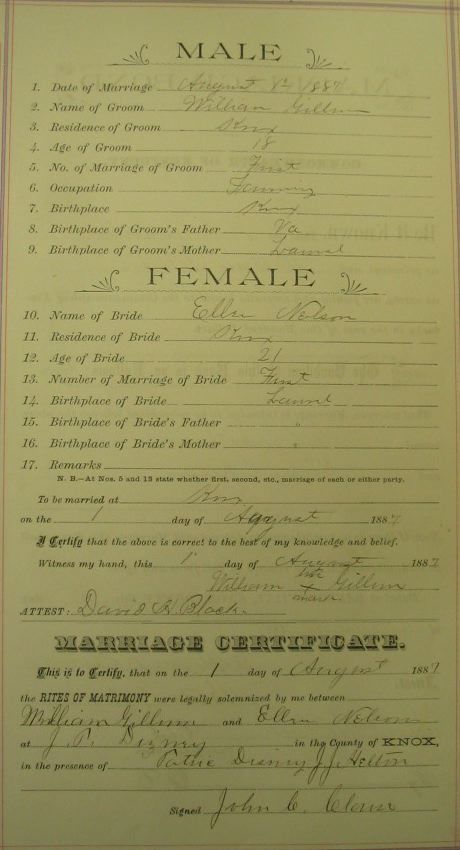 MALE
1. Date of Marriage August 1st 1887
2. Name of Groom William Gillum
3. Residence of Groom Knox
4. Age of Groom 18
5. No. of Marriage of Groom First
6. Occupation Farming
7. Birthplace Knox
8. Birthplace of Groom's Father Va
9. Birthplace of Groom's Mother Laurel
FEMALE
10. Name of Bride Ellen Nelson
11. Residence of Bride Knox
12. Age of Bride 21
13. Number of Marriage of Bride First
14. Birthplace of Bride Laurel
15. Birthplace of Bride's Father "
16. Birthplace of Bride's Mother "
17. Remarks
N. B.—At Nos. 5 and 13 state whether first, second, etc., marriage of each or either party.
To be married at Knox
on the 1 day of August 1887
I Certify that the above is correct to the best of my knowledge and belief.
Witness my hand, this 1 day of August 1887
his
William x Gillum
mark
ATTEST: David H Black
MARRIAGE CERTIFICATE.
This is to Certify, that on the 1 day of August 1887
the RITES OF MATRIMONY were legally solemnized by me between
William Gillum and Ellen Nelson
at J. P. Dizney in the County of KNOX,
in the presence of Disney J J Helton
Signed John C.